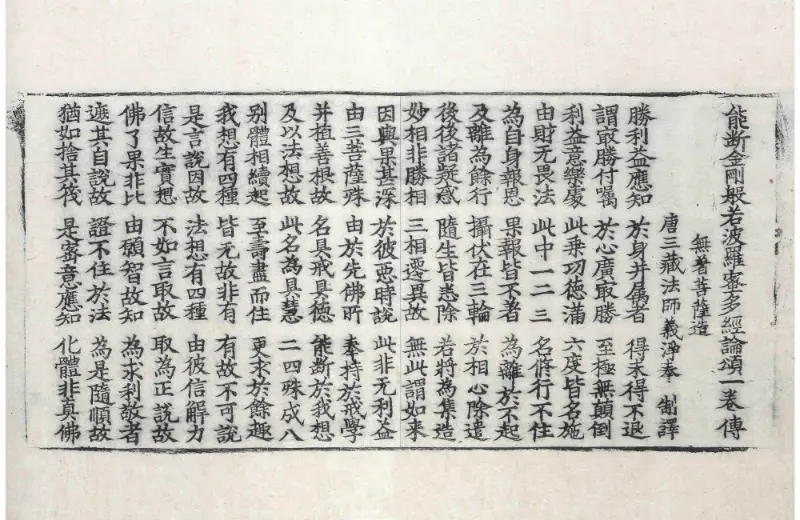 能断金剛般若波羅蜜多經論頌一卷 傳
無著菩薩造
唐三藏法師義淨奉 制譯
勝利益應知 於身并属者 得未得不退
謂㝡勝付囑 於心廣㝡勝 至極無顛倒
利益意樂處 此乗功徳滿 六度皆名施
由財无畏法 此中一二三 名修行不住
為自身報恩 果報皆不著 為離於不起
及離為餘行 攝伏在三輪 於相心除遣
後後諸疑惑 隨生皆悉除 若将為集造
妙相非勝相 三相遷異故 無此謂如来
因與果甚深 於彼惡時說 此非无利益
由三菩薩殊 由於先佛所 奉持於戒學
并植善根故 名具戒具徳 能斷於我想
及以法想故 此名為具慧 二四殊成八
别體相續起 至壽盡而住 更求於餘趣
我想有四種 皆无故非有 有故不可說
是言說因故 法想有四種 由彼信解力
信故生實想 不如言取故 取為正說故
佛了果非比 由願智故知 為求利敬者
遮其自說故 證不住於法 為是隨順故
猶如捨其筏 是密意應知 化體非真佛